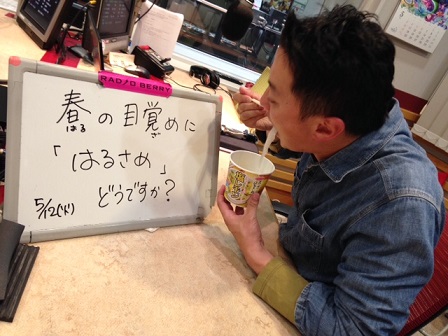 RADIO BERRY
春の目覚めに
はる ざ
「はるさめ」
どうですか?
5/12(火)